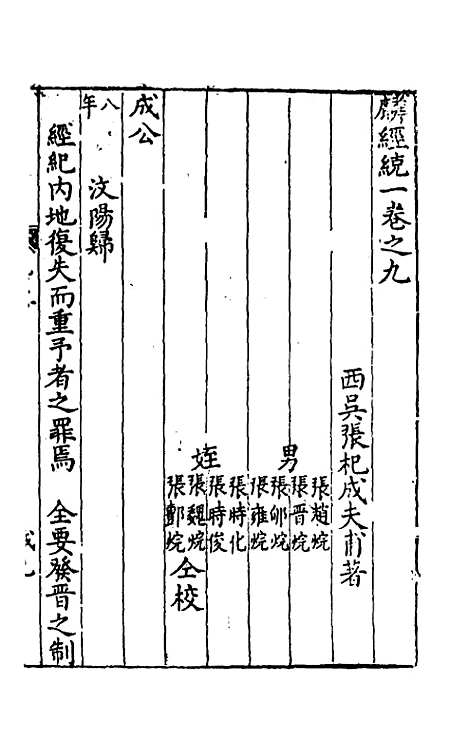 麟經統一卷之九
西吳張杞成夫甫著
男
張趙烷
張晉烷
張邠烷
張雍烷
姪
張時化
張時俊
張魏烷
張鄷烷
仝校
成公
八年
汶陽歸
經紀內地復失而重予者之罪焉 全要發晉之制